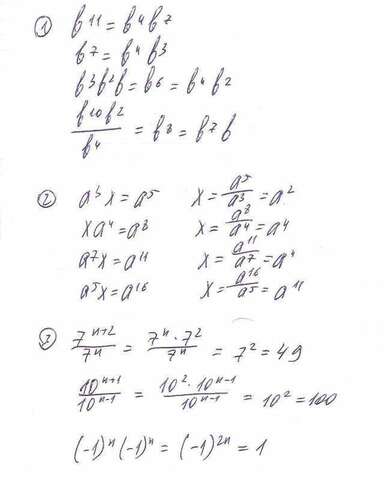 ① b¹¹ = b⁴b⁷
b⁷ = b⁴b³
b³b²b = b⁶ = b⁴b²
b¹⁰b²/b⁴ = b⁸ = b⁷b
② a³x = a⁵ x = a⁵/a³ = a²
xa⁴ = a⁸ x = a⁸/a⁴ = a⁴
a⁷x = a¹¹ x = a¹¹/a⁷ = a⁴
a⁵x = a¹⁶ x = a¹⁶/a⁵ = a¹¹
③ 7ⁿ⁺²/7ⁿ = 7ⁿ·7²/7ⁿ = 7² = 49
10ⁿ⁺¹/10ⁿ⁻¹ = 10²·10ⁿ⁻¹/10ⁿ⁻¹ = 10² = 100
(-1)ⁿ(-1)ⁿ = (-1)²ⁿ = 1